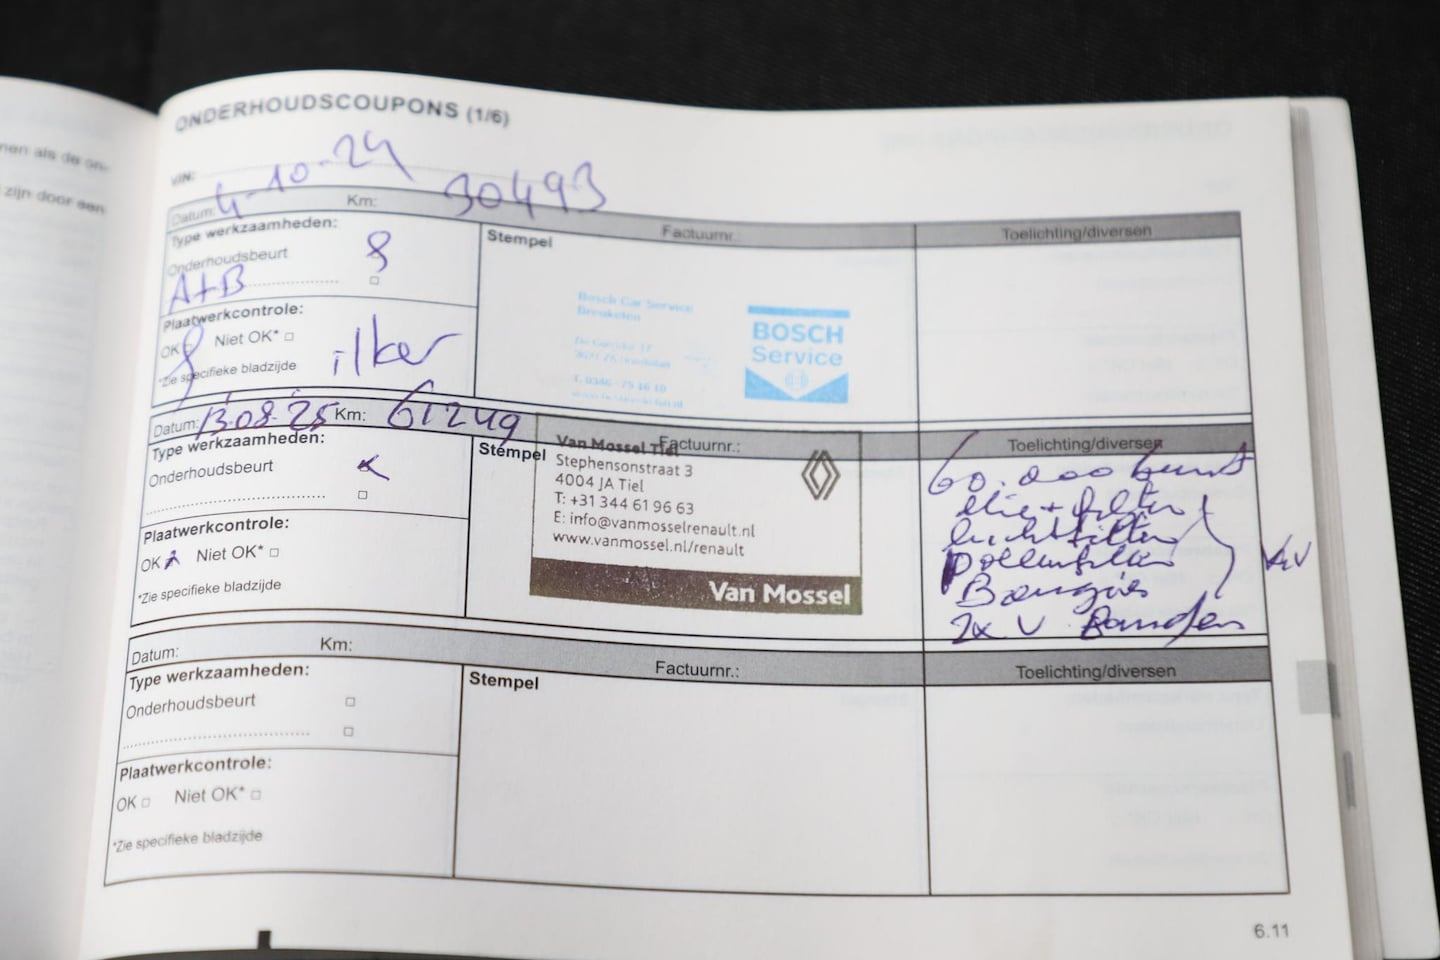 nen als de on-
zijn door een
ONDERHOUDSCOUPONS (1/6)
VIN:
4-10-24
30493
Datum: Km: Factuurnr.: Toelichting/diversen
Type werkzaamheden:
Onderhoudsbeurt
A+B
Plaatwerkcontrole:
OK Niet OK*
*Zie specifieke bladzijde
ilker
Stempel
Bosch Car Service
Breukelen
T. 0346 - 75 16 10
BOSCH
Service
Datum: 13.08.25 Km: 61249 Factuurnr.: Toelichting/diversen
Type werkzaamheden:
Onderhoudsbeurt
Plaatwerkcontrole:
OK Niet OK*
*Zie specifieke bladzijde
Stempel
Van Mossel Tiel
Stephensonstraat 3
4004 JA Tiel
T: +31 344 61 96 63
E: info@vanmosselrenault.nl
www.vanmossel.nl/renault
Van Mossel
60.000 beurt
olie + filter
luchtfilter
Pollenfilter
Bougies
2x V Banden
Datum: Km: Factuurnr.: Toelichting/diversen
Type werkzaamheden:
Onderhoudsbeurt
Plaatwerkcontrole:
OK Niet OK*
*Zie specifieke bladzijde
Stempel
6.11